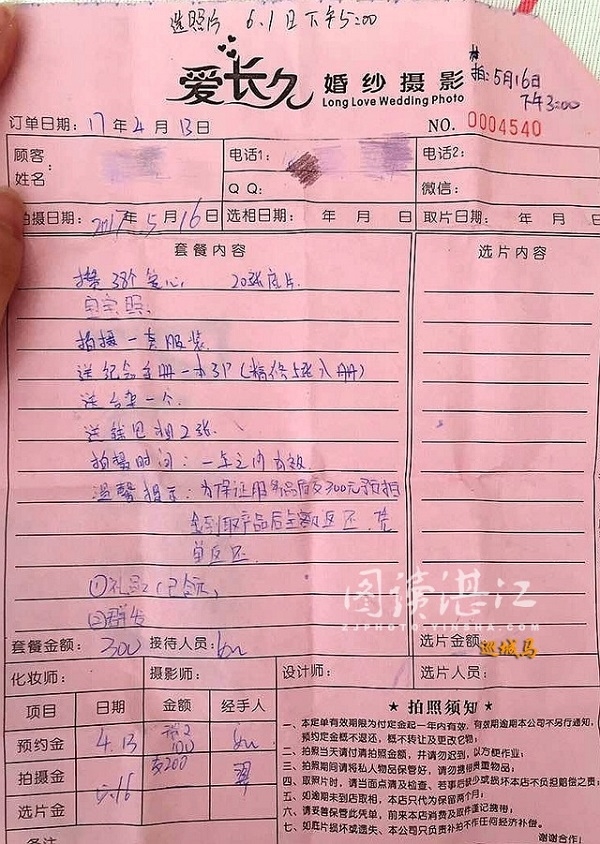 选照片 6.1日下午5:00
爱长久 婚纱摄影
Long Love Wedding Photo
拍:5月16日
下午3:00
订单日期: 17年4月13日 NO. 0004540
顾客 电话1: 电话2:
姓名 QQ: 微信:
拍摄日期: 2017年5月16日 选相日期: 年 月 日 取片日期: 年 月 日
套餐内容 选片内容
攒38个爱心 20张底片
拍摄一套服装
送纪念手册一本3P(精修5张入册)
送台架一个
送钱包相2张
拍摄时间:一年之内有效
温馨提示:为保证服务品质交300元预拍
金到取产品后全额返还 凭
单返还
①礼品(已领)
②群发
图读湛江
ZJPHOTO.YINSHA.COM
套餐金额: 300 接待人员: 选片金额:
巡城马
化妆师: 摄影师: 设计师: 选片人员:
项目 日期 金额 经手人
预约金 4.13 100
拍摄金 5.16 200
选片金
备注
★ 拍照须知 ★
一、本定单有效期限为付定金起一年内有效。有效期逾期本公司不另行通知,
预约定金概不退还,概不转让及更改它物;
二、拍照当天请付清拍照金额,并请勿迟到,以方便作业;
三、拍照期间请将私人物品保管好,请勿携带贵重物品;
四、取照片时,请当面点清及检查、若事后缺少或损坏本店不负担赔偿之责;
五、如逾期未到店取相,本店只代为保留两个月;
六、请妥善保管此凭单,前来本店消费及取件谨记携带;
七、如底片损坏或遗失、本公司只负责补拍不作任何经济补偿。
谢谢合作!